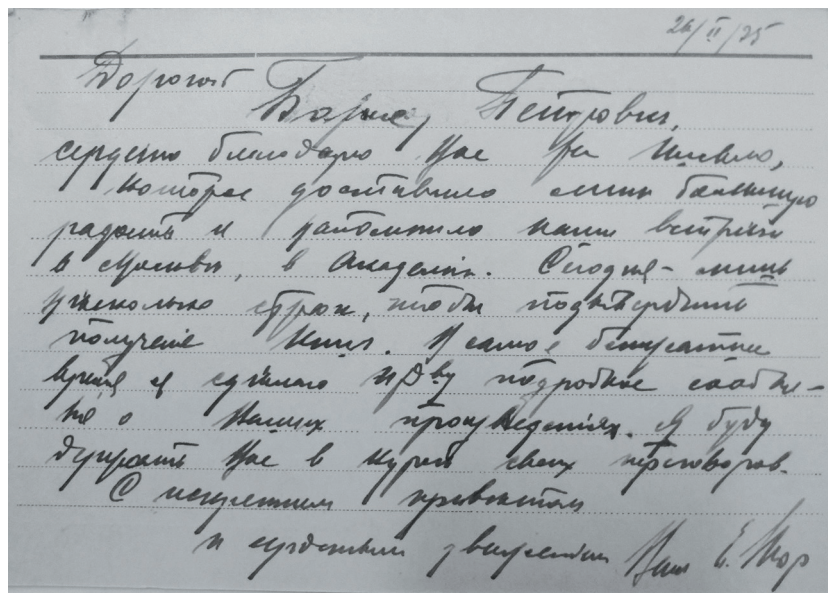 26/II/75
Дорогой
Борис Петрович,
сердечно благодарю Вас за письмо,
которое доставило мне большую
радость и напомнило наши встречи
в Москве, в Академии. Сегодня - лишь
несколько строк, чтобы подтвердить
получение книг. В самое ближайшее
время я сделаю подробное сообще-
ние о Ваших произведениях. Я буду
держать Вас в курсе своих переговоров.
С искренним приветом
и сердечным уважением Ваш Е.